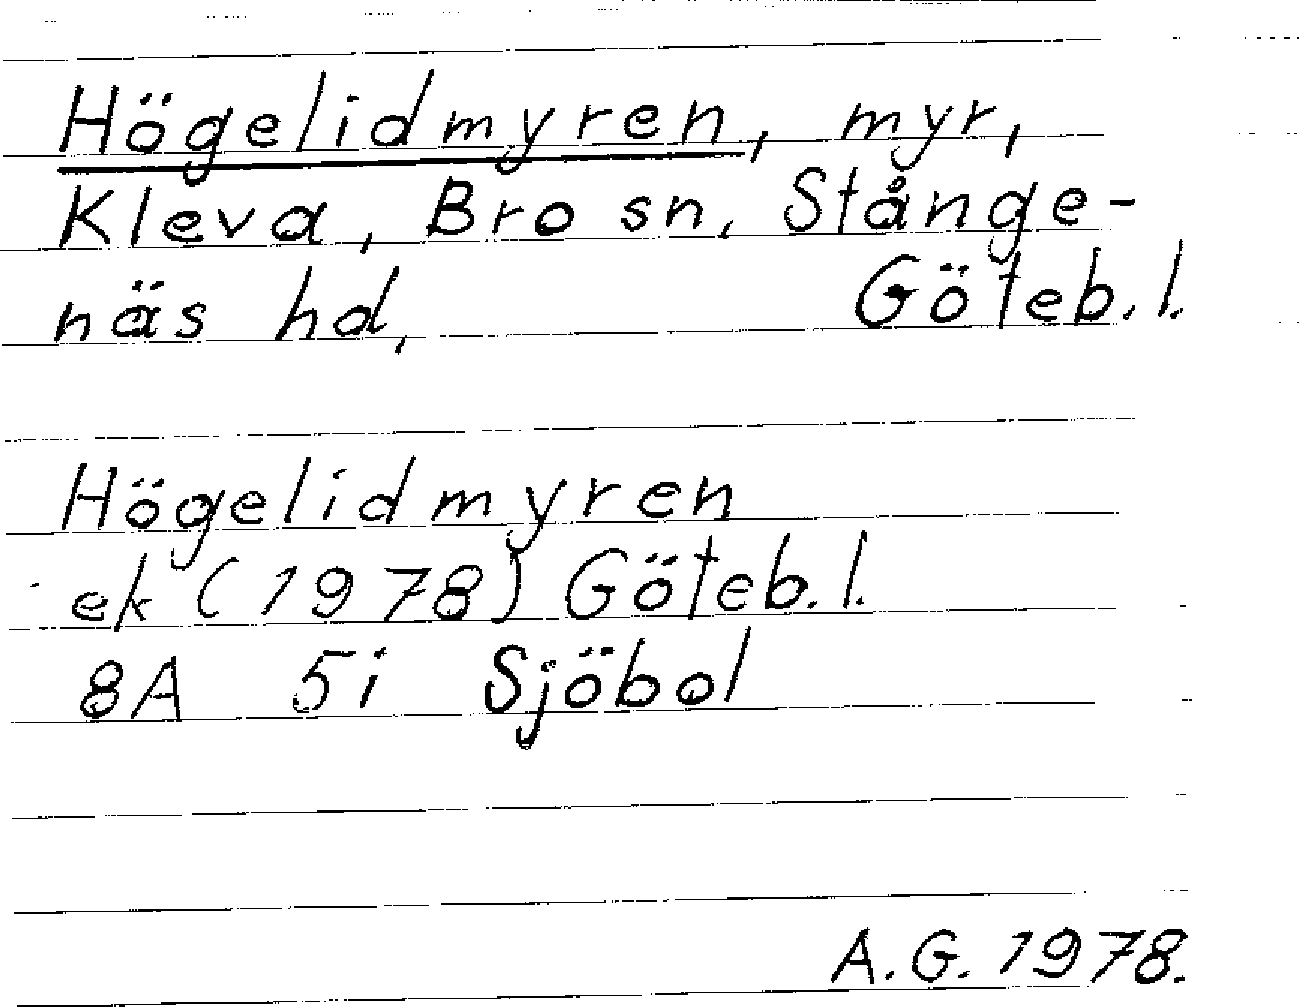 Högelidmyren, myr,
Kleva, Bro sn, Stånge-
näs hd, Göteb. l.
Högelidmyren
ek (1978) Göteb. l.
8A 5i Sjöbol
A.G. 1978.